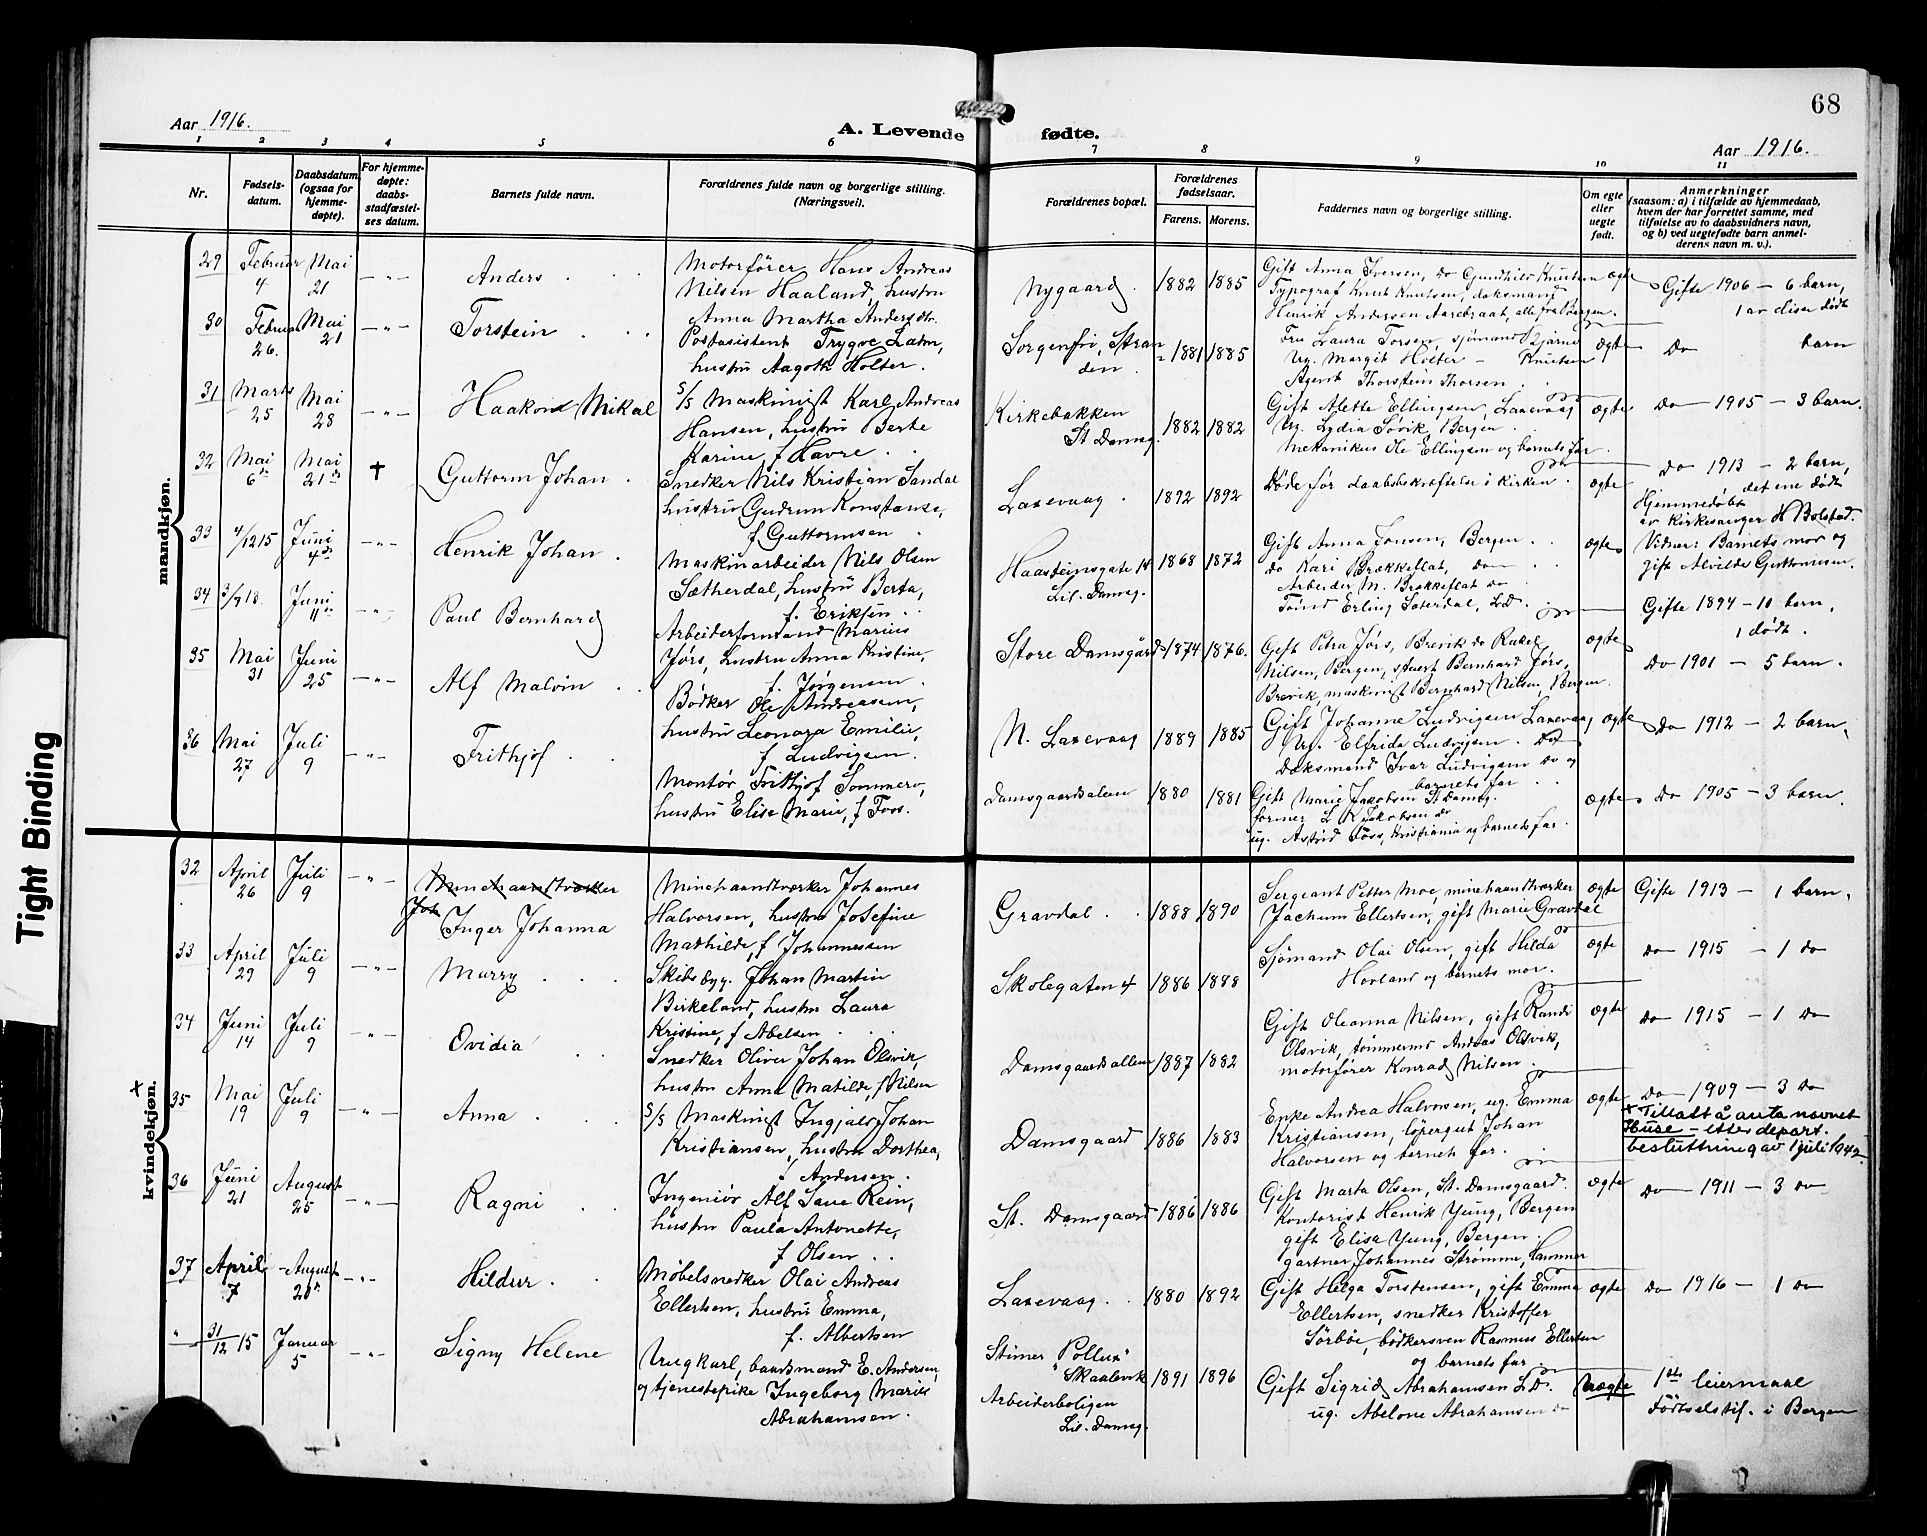 68
Aar 1916.
A. Levende fødte.
Aar 1916.
1 2 3 4 5 6 7 8 9 10 11
Nr.
Fødsels-
datum.
Daabsdatum
(ogsaa for
hjemme-
døpte).
For hjemme-
døpte:
daabs-
stadfæstel-
ses datum.
Barnets fulde navn.
Forældrenes fulde navn og borgerlige stilling.
(Næringsvei).
Forældrenes bopæl.
Forældrenes
fødselsaar.
Farens. Morens.
Faddernes navn og borgerlige stilling.
Om egte
eller
uegte
født.
Anmerkninger
(saasom: a) i tilfælde av hjemmedaab,
hvem der har forrettet samme, med
tilføielse av to daabsvidners navn,
og b) ved uegtefødte barn anmel-
derens navn m. v.).
mandkjøn.
29 Februar 4 Mai 21 -"- Anders
Motorfører Hans Andreas
Nilsen Haaland, hustru
Anna Martha Andersdtr.
Nygaard. 1882 1885
Gift Anna Iversen, do Gundhild Knutsen
Typograf Knut Knutsen, dæksmand
Henrik Andersen Aarebraat, alle fra Bergen.
ægte
Gifte 1906 - 6 barn,
1 av disse dødt
30 Februar 26. Mai 21 -"- Torstein
Postasistent Trygve Lahn,
hustru Aagoth Holter.
Sorgenfri, Stran
den. 1881 1885
Fru Laura Torsen, sjømand Bjarne
Ug. Margit Holter - Knutsen
Agent Thorstein Thorsen
ægte
Do barn
31 Marts 25 Mai 28 -"- Haakon Mikal
S/S Maskinist Karl Andreas
Hansen, hustru Berte
Karine f Havre.
Kirkebakken
St Damsg. 1882 1882
Gift Alette Ellingsen, Laxevaag
Ug. Lydia Søvik, Bergen
Mekaniker Ole Ellingsen og barnets far.
ægte
Do 1905 - 3 barn.
32 Mai 6te Mai 21de † Guttorm Johan
Snedker Nils Kristian Sandal
hustru Gudrun Konstanse,
f Guttormsen
Laxevaag. 1892 1892
Døde før daabsbekræftelse i kirken.
ægte
Do 1913 - 2 barn,
det ene dødt
Hjemmedøbt
av kirkesanger H Bolstad.
Vidner: Barnets mor og
gift Alvilde Guttormsen.
33 4/12 15 Juni 4de -"- Henrik Johan.
Maskinarbeider Nils Olsen
Sætherdal, hustru Berta,
f. Eriksen
Haasteinsgate 14
Lil. Damsg. 1868 1872
Gift Anna Jonsen, Bergen
do Kari Brækkeflat, do
Arbeider M. Brækkeflat do
Tønd Erling Saterdal, L.D.
ægte
Gifte 1894 - 10 barn,
1 dødt.
34 3/9 13. Juni 11te -"- Paul Bernhard
Arbeiderformand Marius
Jørs, hustru Anna Kristine,
f. Jørgensen.
Store Damsgård 1874 1876.
Gift Petra Jørs, Brevik do Rakel
Nilsen, Bergen, Stuert Bernhard Jørs,
Brevik, maskinist Bernhard Nilsen, Bergen.
ægte
Do 1901 - 5 barn.
35 Mai 31 Juni 25 -"- Alf Malvin
Bødker Ole Andreasen,
hustru Leonara Emilie,
f Ludvigsen.
N. Laxevaag 1889 1885
Gift Johanne Ludvigsen Laxevaag
Ug. Elfrida Ludvigsen. Do
Dæksmand Ivar Ludvigsen do og
barnets far
ægte
Do 1912 - 2 barn.
36 Mai 27 Juli 9 -"- Frithjof
Montør Frithjof Sommero,
hustru Elise Marie, f Foss.
Damsgaardsaleen 1880 1881
Gift Marie Jakobsen St Damsg.
former L K Jakobsen do
ug. Astrid Foss, Kristiania og barnets far.
ægte
Do 1905 - 3 barn.
kvindekjøn.
32 April 26 Juli 9 -"- Minehaandtværker
Joh
Inger Johanna
Minehaandtværker Johannes
Halvorsen, hustru Josefine
Mathilde, f Johannessen
Gravdal. 1888 1890
Sergeant Petter Moe, minehaandtværker
Jachum Ellertsen, gift Marie Gravdal
ægte
Gifte 1913 - 1 barn.
33 April 29 Juli 9 -"- Marry
Skibsbyg. Johan Martin
Birkeland, hustru Laura
Kristine, f Abelsen
Skolegaten 4 1886 1888
Sjømand Olai Olsen, gift Hilda
Hovland og barnets mor.
ægte
do 1915 - 1 do
34 Juni 14 Juli 9 -"- Ovidia
Snedker Oliver Johan Olsvik,
hustru Anna Matilde, f Nilsen
Damsgaardsalleen 1887 1882
Gift Oleanna Nilsen, gift Randi
Olsvik, tømmermd Andreas Olsvik,
motorfører Konrad Nilsen
ægte
Do 1915 - 1 Do
x
35 Mai 19 Juli 9 -"- Anna
S/S Maskinist Ingjald Johan
Kristiansen, hustru Dorthea,
f Andersen.
Damsgaard 1886 1883
Enke Andrea Halvorsen, ug. Emma
Kristiansen, løpergut Johan
Halvorsen og barnets far.
ægte
Do 1909 - 3 Do
x Tillatt å anta navnet
Huse - etter depart.
beslutning av 1 juli 1942
36 Juni 21 August 25 -"- Ragni
Ingeniør Alf Lane Rein,
hustru Paula Antonette,
f Olsen
St. Damsgaard 1886 1886
Gift Marta Olsen, St. Damsgaard.
Kontorist Henrik Yung, Bergen
gift Elisa Yung, Bergen.
gartner Johannes Strømme, Hammer
ægte
Do 1911 - 3 do
37 April 7 August 20de -"- Hildur.
Møbelsnedker Olai Andreas
Ellertsen, hustru Emma,
f. Albertsen
Laxevaag. 1880 1892
Gift Helga Torstensen, gift Emma
Ellertsen, snedker Kristoffer
Sørbøe, bødkersven Rasmus Ellertsen
og barnets far.
ægte
Do 1916 - 1 Do
" 31/12 15 Januar 5 -"- Signy Helene
Ungkarl, baadsmand E. Andersen,
og tjenestepike Ingeborg Marie
Abrahamsen.
Stimer "Pollux"
Skaalevik
Arbeiderboligen
Lil. Damsg. 1891 1896
Gift Sigrid Abrahamsen L.D.
ug. Abelone Abrahamsen do
Uægte
1ste leiermaal
Fødselstif. i Bergen
Tight Binding